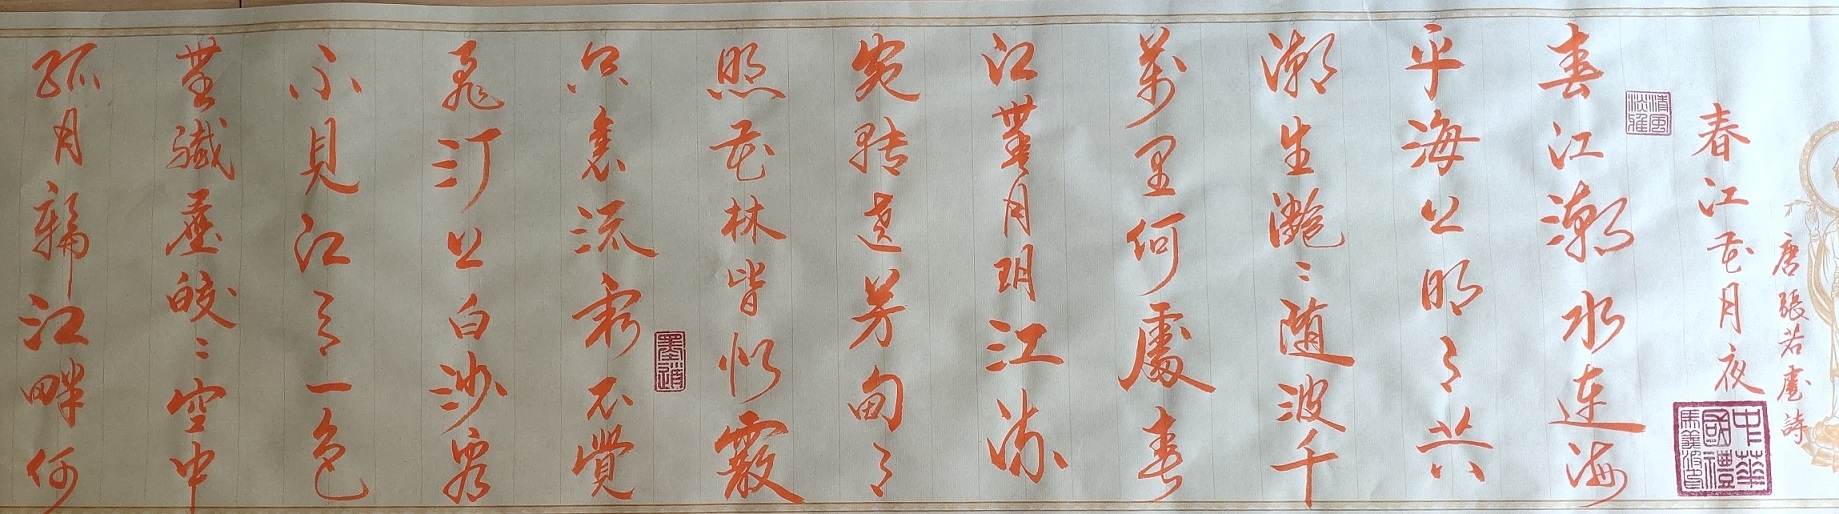 唐張若虛詩
春江花月夜
中華
國禮
清風
淡雅
春江潮水連海
平海上明月共
潮生灩〻随波千
萬里何處春
江無月明江流
宛轉遶芳甸月
照花林皆似霰
空裏流霜不覺
墨道
飛汀上白沙看
不見江天一色
無纖塵皎〻空中
孤月輪江畔何